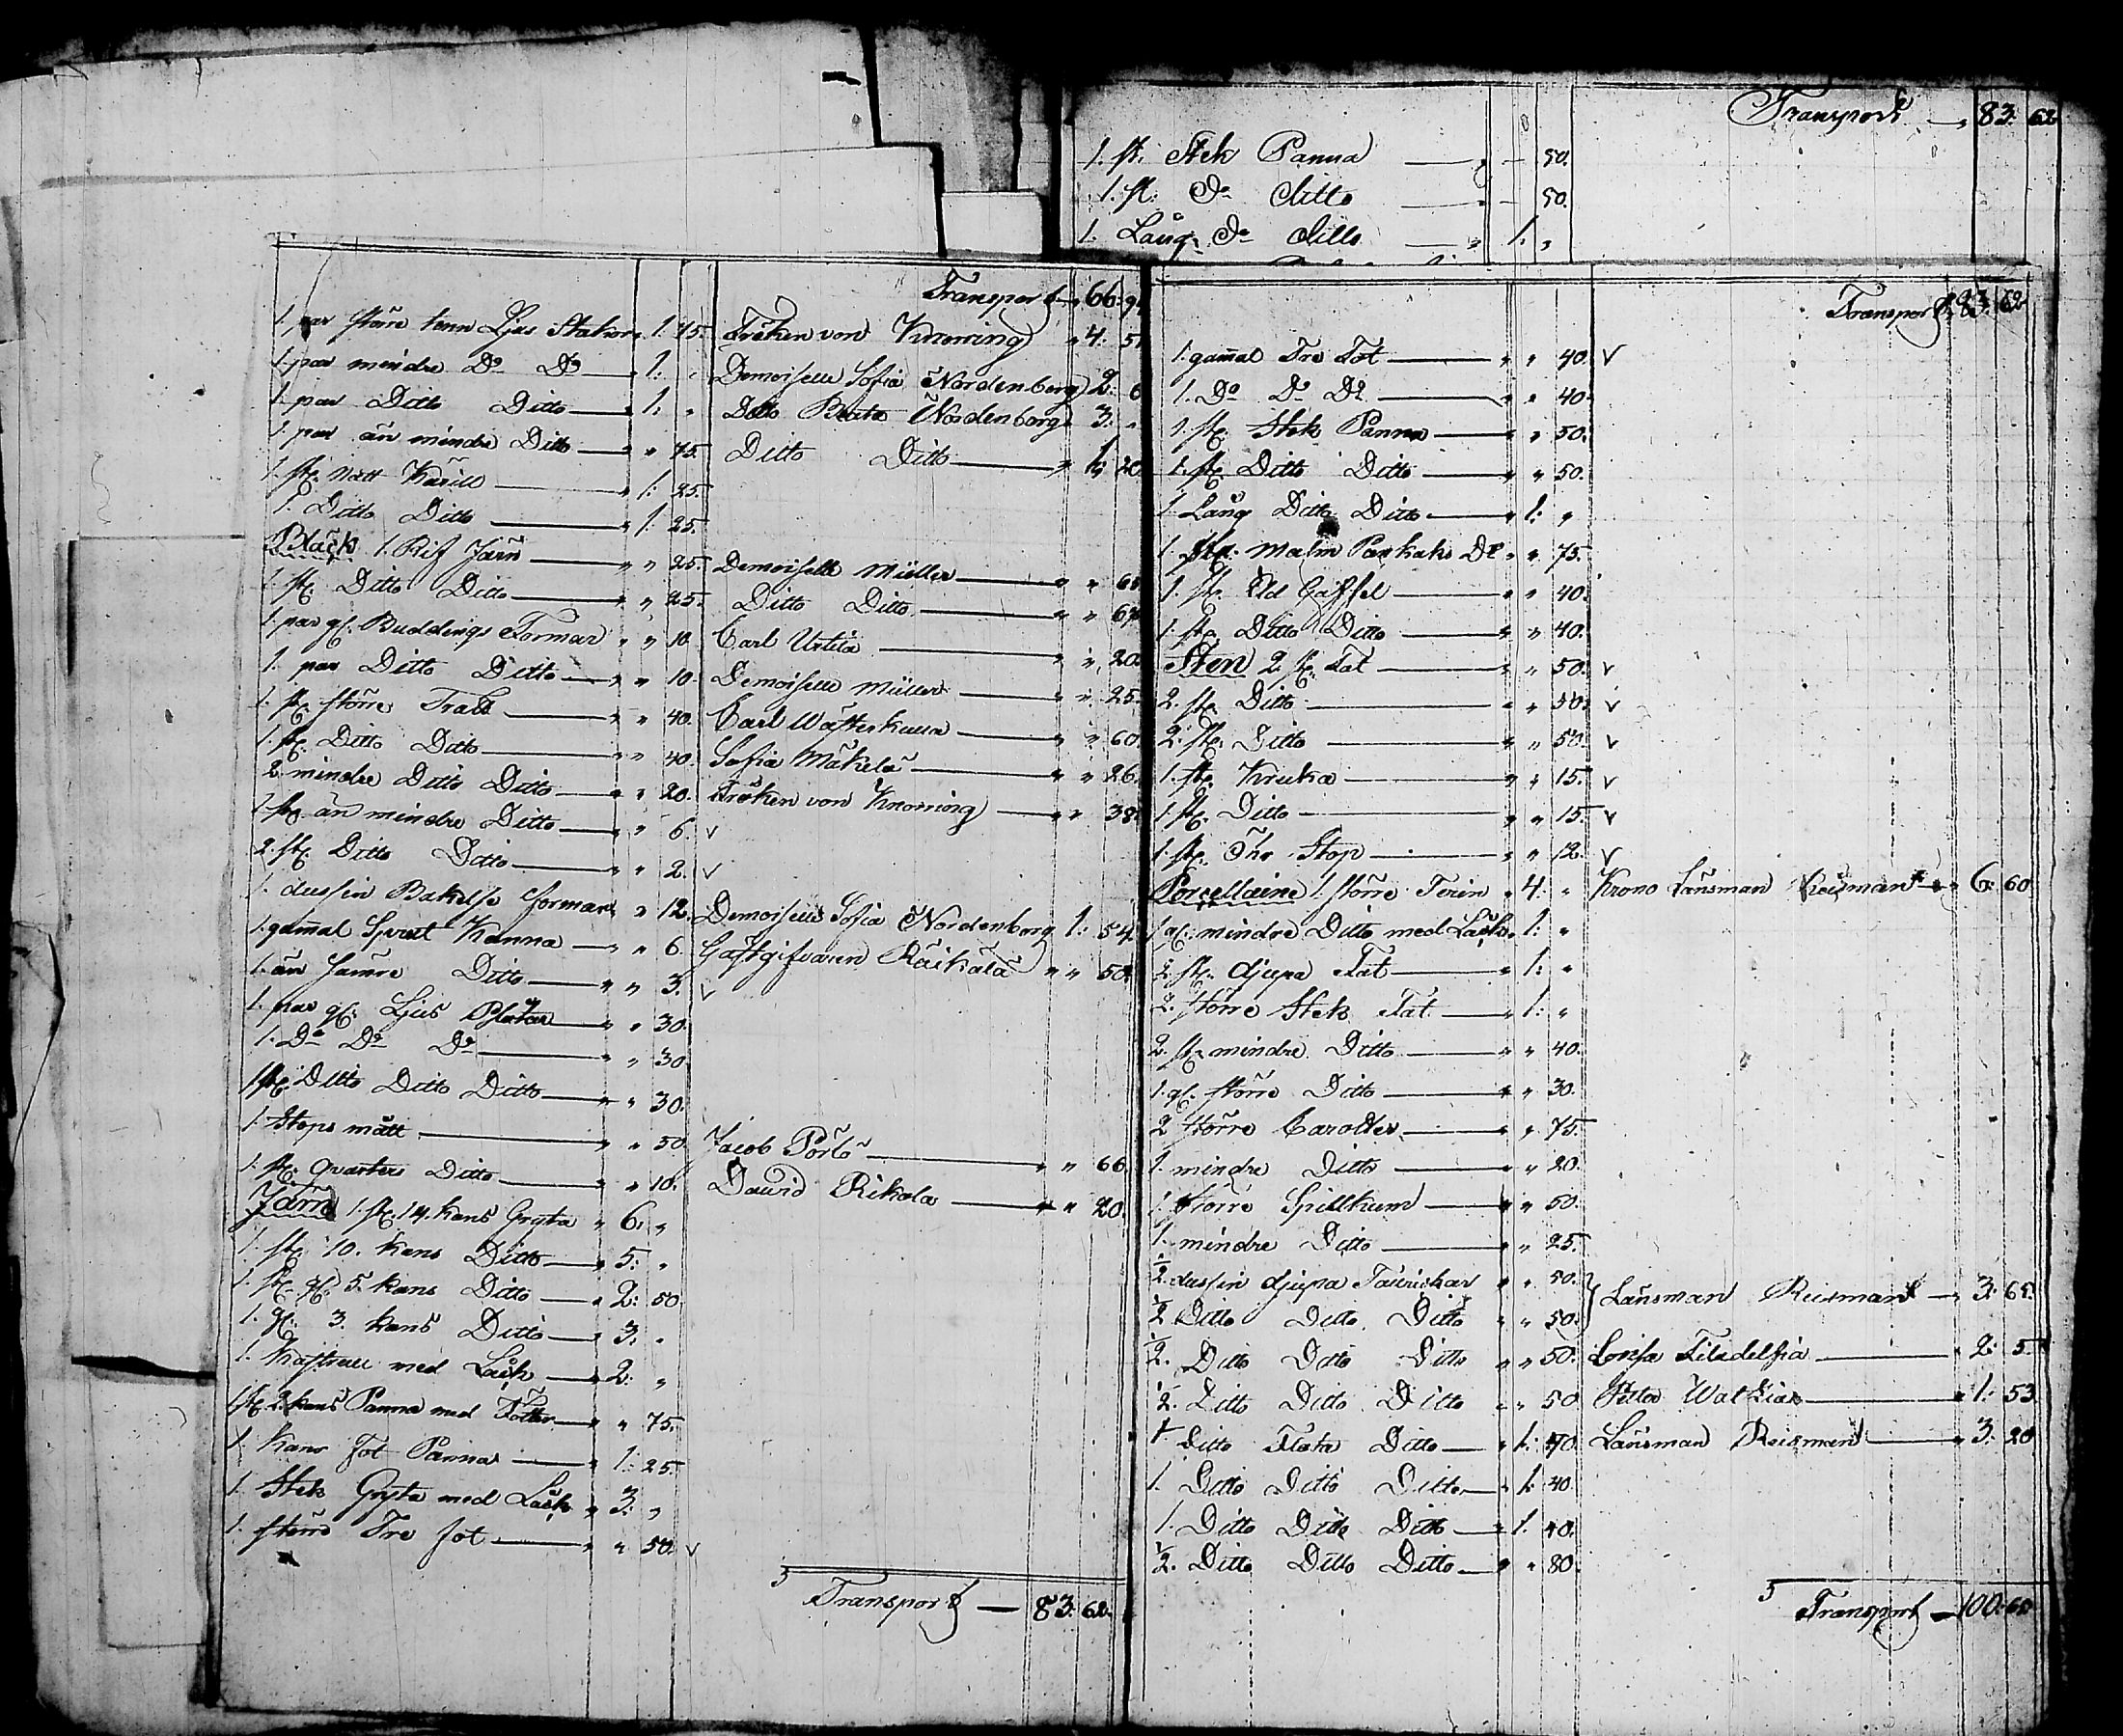 Transport — 83: 62
1. st. Stek Panna — " — 50.
1. st: Do Ditto — 50.
1. Lång Do Ditto — " 1: "
Transport — 66: 9
1. par större tenn Ljus Stakar " 1: 75. Fröken von Knorring " 4: 5
1. par mindre Do Do — 1: " Demoiselle Sofia Nordenberg 2: 6
1. par Ditto Ditto — 1: " Ditto Beata Nordenberg 3: "
1. par än mindre Ditto — " 75. Ditto Ditto — " 1: 20
1. st. Natt Kärill — " 1: 25.
1. Ditto Ditto — " 1: 25.
Bläck 1. Rif Järn — " " 25. Demoiselle Müller — " "
1. st. Ditto Ditto — " " 25. Ditto Ditto — " "
1. par gl. Buddings Formar " " 10. Carl Urtila — " " 20
1. par Ditto Ditto — " " 10. Demoiselle Müller — " " 25.
1. st. större Tratt — " " 40. Carl Wästerkulla — " " 60
1. st. Ditto Ditto — " " 40. Sofia Mäkelä — " " 26.
2. mindre Ditto Ditto — " " 20. Fröken von Knorring — " " 38
1. st. än mindre Ditto — " " 6. v
2. st. Ditto Ditto — " " 2. v
1. dussin Bakelse formar " " 12. Demoiselle Sofia Nordenberg 1: 54.
1. gam̄al Sprut Kanna — " " 6. Gästgifvaren Räikälä " " 50.
1. än sämre Ditto — " " 3. v
1. par gl. Ljus Plåtar — " " 30.
1. Do Do Do — " " 30
1 st. Ditto Ditto Ditto — " " 30.
1. Stops mått — " " 50 Jacob Pörtö — " " 66
1. st. quarters Ditto — " " 10. David Rikala — " " 20.
Järn 1. st. 14. kans Gryta " 6: "
1. st. 10. kans Ditto — " 5: "
1. st. gl. 5. kans Ditto — " 2: 50
1. gl. 3. kans Ditto — " 3: "
1. Kastrull med Låck — " 2: "
1 st. 2. kans Panna med Fötter — " " 75.
1. Kans Fot Panna — " 1: 25.
1. Stek Gryta med Låck " 3: "
1. större Tre fot — " " 50. v
Transport — 83: 62.
Transport 83: 62
1. gam̄al Tre Fot — " " 40. v
1. Do Do Do — " " 40.
1. st. Stek Panna — " " 50.
1. st. Ditto Ditto — " " 50.
1. Lång Ditto Ditto — " 1: "
1. st. Malm Do " " 75.
1. st. Eld Gaffel — " " 40.
1. st. Ditto Ditto — " " 40.
Sten 2. st. Fat — " " 50. v
2. st. Ditto — " " 50. v
2. st. Ditto — " " 50. v
1. st. Kruka — " " 15. v
1 st. Ditto — " " 15. v
1. st. Stop — " " 12. v
Porcellaine 1. större Terin " 4: " Krono Länsman Reisman — " 6: 60
1 gl. mindre Ditto med Låck " 1: "
2. st. djupa Fat — " 1: "
2. större Stek Fat — " 1: "
2. st. mindre Ditto — " " 40.
1. gl. större Ditto — " " 30.
2 större Carotter — " " 75.
1. mindre Ditto — " " 20.
1. större Spillkum — " " 50.
1. mindre Ditto — " " 25.
½. dussin djupa Tallrickar " " 50.
½ Ditto Ditto Ditto " " 50. } Länsman Reisman — " 3: 65.
½. Ditto Ditto Ditto " " 50. Lovisa Filadelfia — " 2: 5
½. Ditto Ditto Ditto " " 50 Petter — " 1: 53
1. Ditto Flata Ditto — " 1: 40. Länsman Reisman — " 3: 20
1. Ditto Ditto Ditto — " 1: 40.
1. Ditto Ditto Ditto — " 1. 40.
½. Ditto Ditto Ditto — " " 80.
Transport — 100: 65